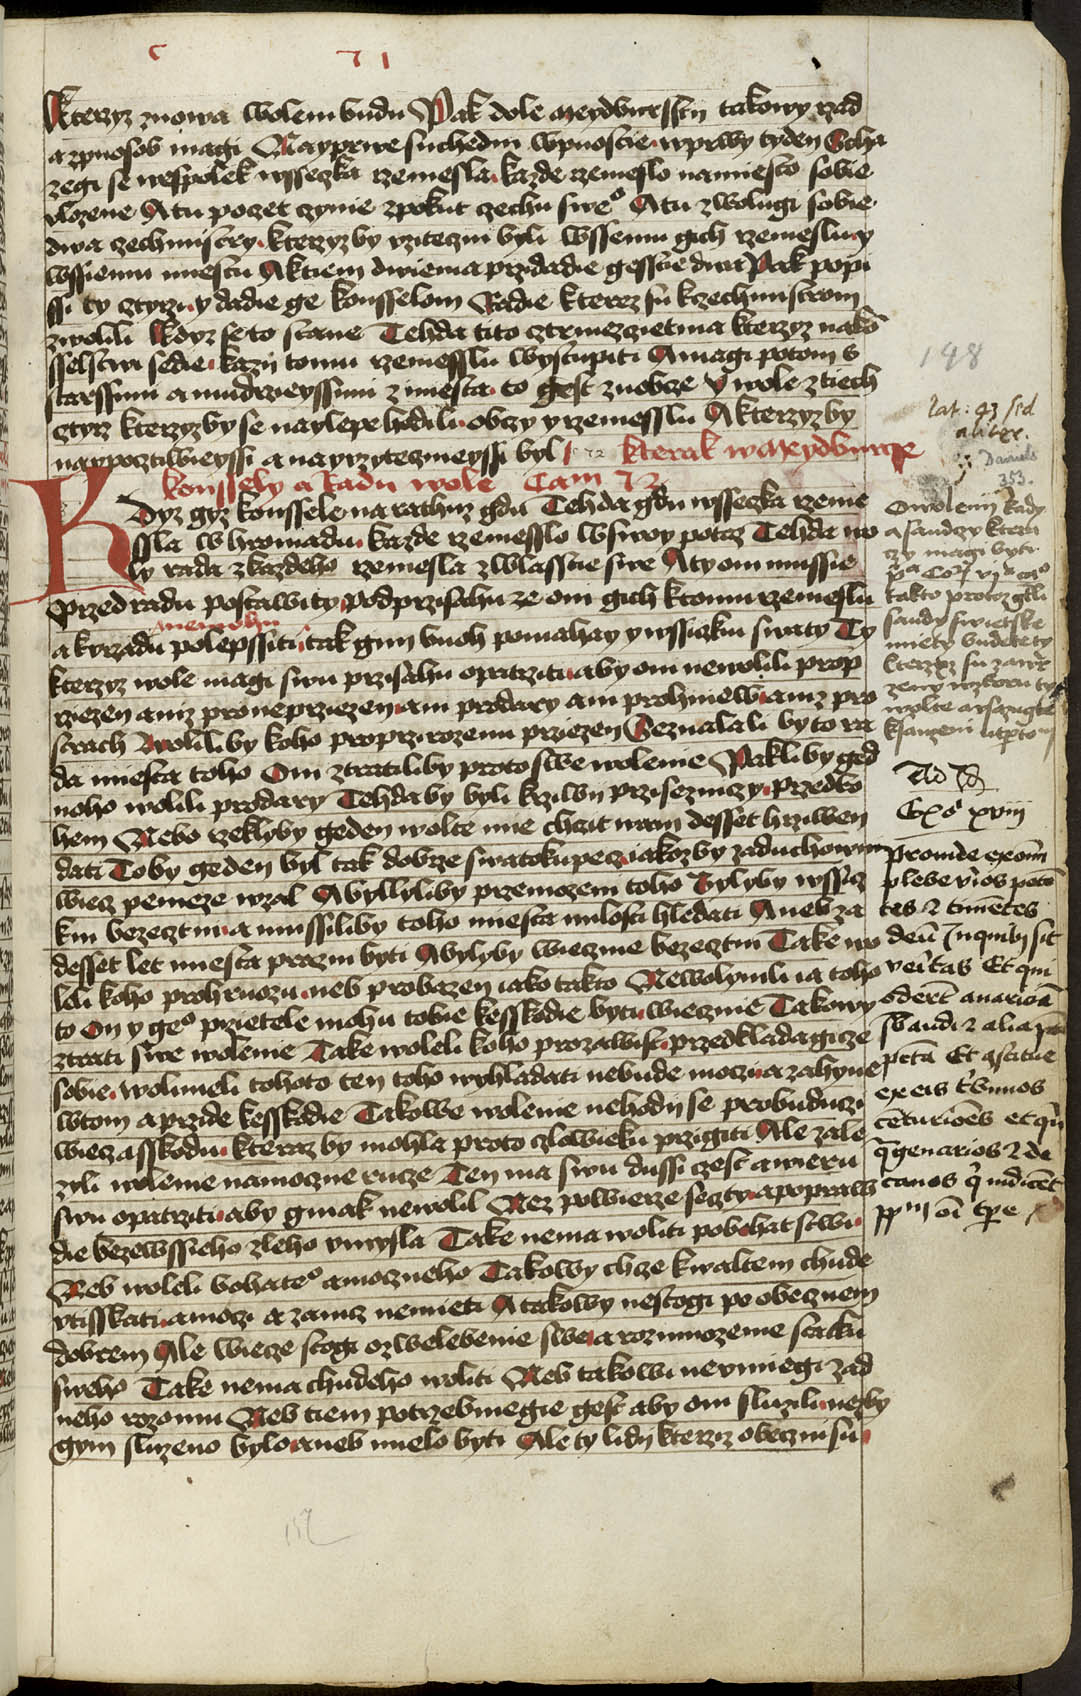 c 71
Kterzyz znowa wolem budu Pak dole meydburssczy takowy rzad
a zpuosob magi Nayprwe suchedni wpuostie wprwy tyden Scha
zegi se wespolek wssezka rzemesla kazde rzemeslo namiesto sobie
vlozene A tu pozet zynie zpokut zechu sweo A tu zwolugi sobie
dwa zechmistry kterzyzby vzitezni byli wssemu gich rzemeslu y
wssiemu miestu A ktiem dwiema przidadie gesstie dwa Pak popi
ssi ty cztyrzi y dadie ge konsselom Radie kterez su kzechmistrom
zwolili Kdyz se to stane Tehda tito cztrnezzietma kterzyz nako
sselstwi sedie kazi tomu rzemesslu wystupiti A magi potom s
starssimi a mudrzeyssimi z miesta to gest znobcze y wole z tiech
cztyrz kterzyzby se naylepe hodili obczy y rzemesslu A kterzyzby
naypocztiweyssi a nayvzytecznieyssi byl 72 kterak wmeydburcze
konssely a radu wole Cam 72
Kdyz giz konssele na rathuz gdu Tehda gdu wssezka rzeme
ssla whromadu kazde rzemesslo wswoy potaz Tehda wo
ly rada zkazdeho rzemesla zwlasstie swe A ty oni mussie
przed radu postawity pod przisahu ze oni gich ktomu rzemeslu
niemohu
a kyradu polepssiti tak gim buoh pomahay y wssiczkni swaty Ty
kterzyz wole magi swu przisahu opatrziti aby oni newolili prop
rziezen aniz proneprziezen ani prodary ani prohniew aniz pro
strach A wolili by koho proprzirozenu prziezen Seznalali by to ra
da miesta toho Oni ztratiliby proto swe wolenie Pakliby ged
noho wolili prodary Tehda by byli krziwi przisezniczy przedbo
hem Nebo rzeklyby geden wolte mie chzit wam desset hrziwen
dati Toby geden byl tak dobrze swatokupecz iakozby zaduchowni
wiecz penieze wzal A byllyliby przemozeni toho Bylyby wssicz
kni bezecztni a mussiliby toho miesta milosti hledati A neb za
desset let miesta prazni byti A bylyby wieczne bezecztni Take wo
leli koho prohruozu neb probazen iako takto Newolymli ia toho
to On y geo przietele mohu tobie kesskodie byti wiecznie Takowy
ztrati swe wolenie Take woleli koho prozawist przedkladagicze
sobie wolimeli tohoto ten toho wyhladati nebude moczi a zahyne
wtom a przide kesskodie Takowe wolenie nehodi se probuduczi
wiecz a sskodu kteraz by mohla proto czlowieku przigiti Ale zale
zyli wolenie namoczne rucze Ten ma swu dussi czest a wieru
swu opatrziti aby ginak newolil Nez powierze seczty a poprawi
die bezewssieho zleho vmysla Take nema woliti pobohatstwi
Neb woleli bohateo a moczneho Takowy chcze kwaltem chude
vtisskati a moczi a zanicz nemieti A takowy nestogi po obecznem
dobrem Ale wiecze stogi ozwelebenie swe a rozmnozenie statku
sweho Take nema chudeho woliti Neb takowi nevmiegi zad
neho rozomu Neb tiem potrzebniegie gest aby oni sluzili nezby
gym sluzeno bylo a neb mielo byti Ale ty lidi kterziz obeczni su
198
lat: 43 sed
aliter.
Daniels
353.
O wolenij Rady
a saudczy kterzi
czy magi byti
pa Cor vi cao
takto protoz gkli
saudy swietske
miety budete ty
kterzyz su zawr
zeny w zboru ty
wolte
Ad Id
Exo xviii
Prouide ex omi
plebe viros poten
tes et timetes
deu In quibus sit
veritas Et qui
oderet auaricia
Et constitue
ex eis tribunos
centuriones et qui
quagenarios et de
canos qui iudicet
oi tpe
157